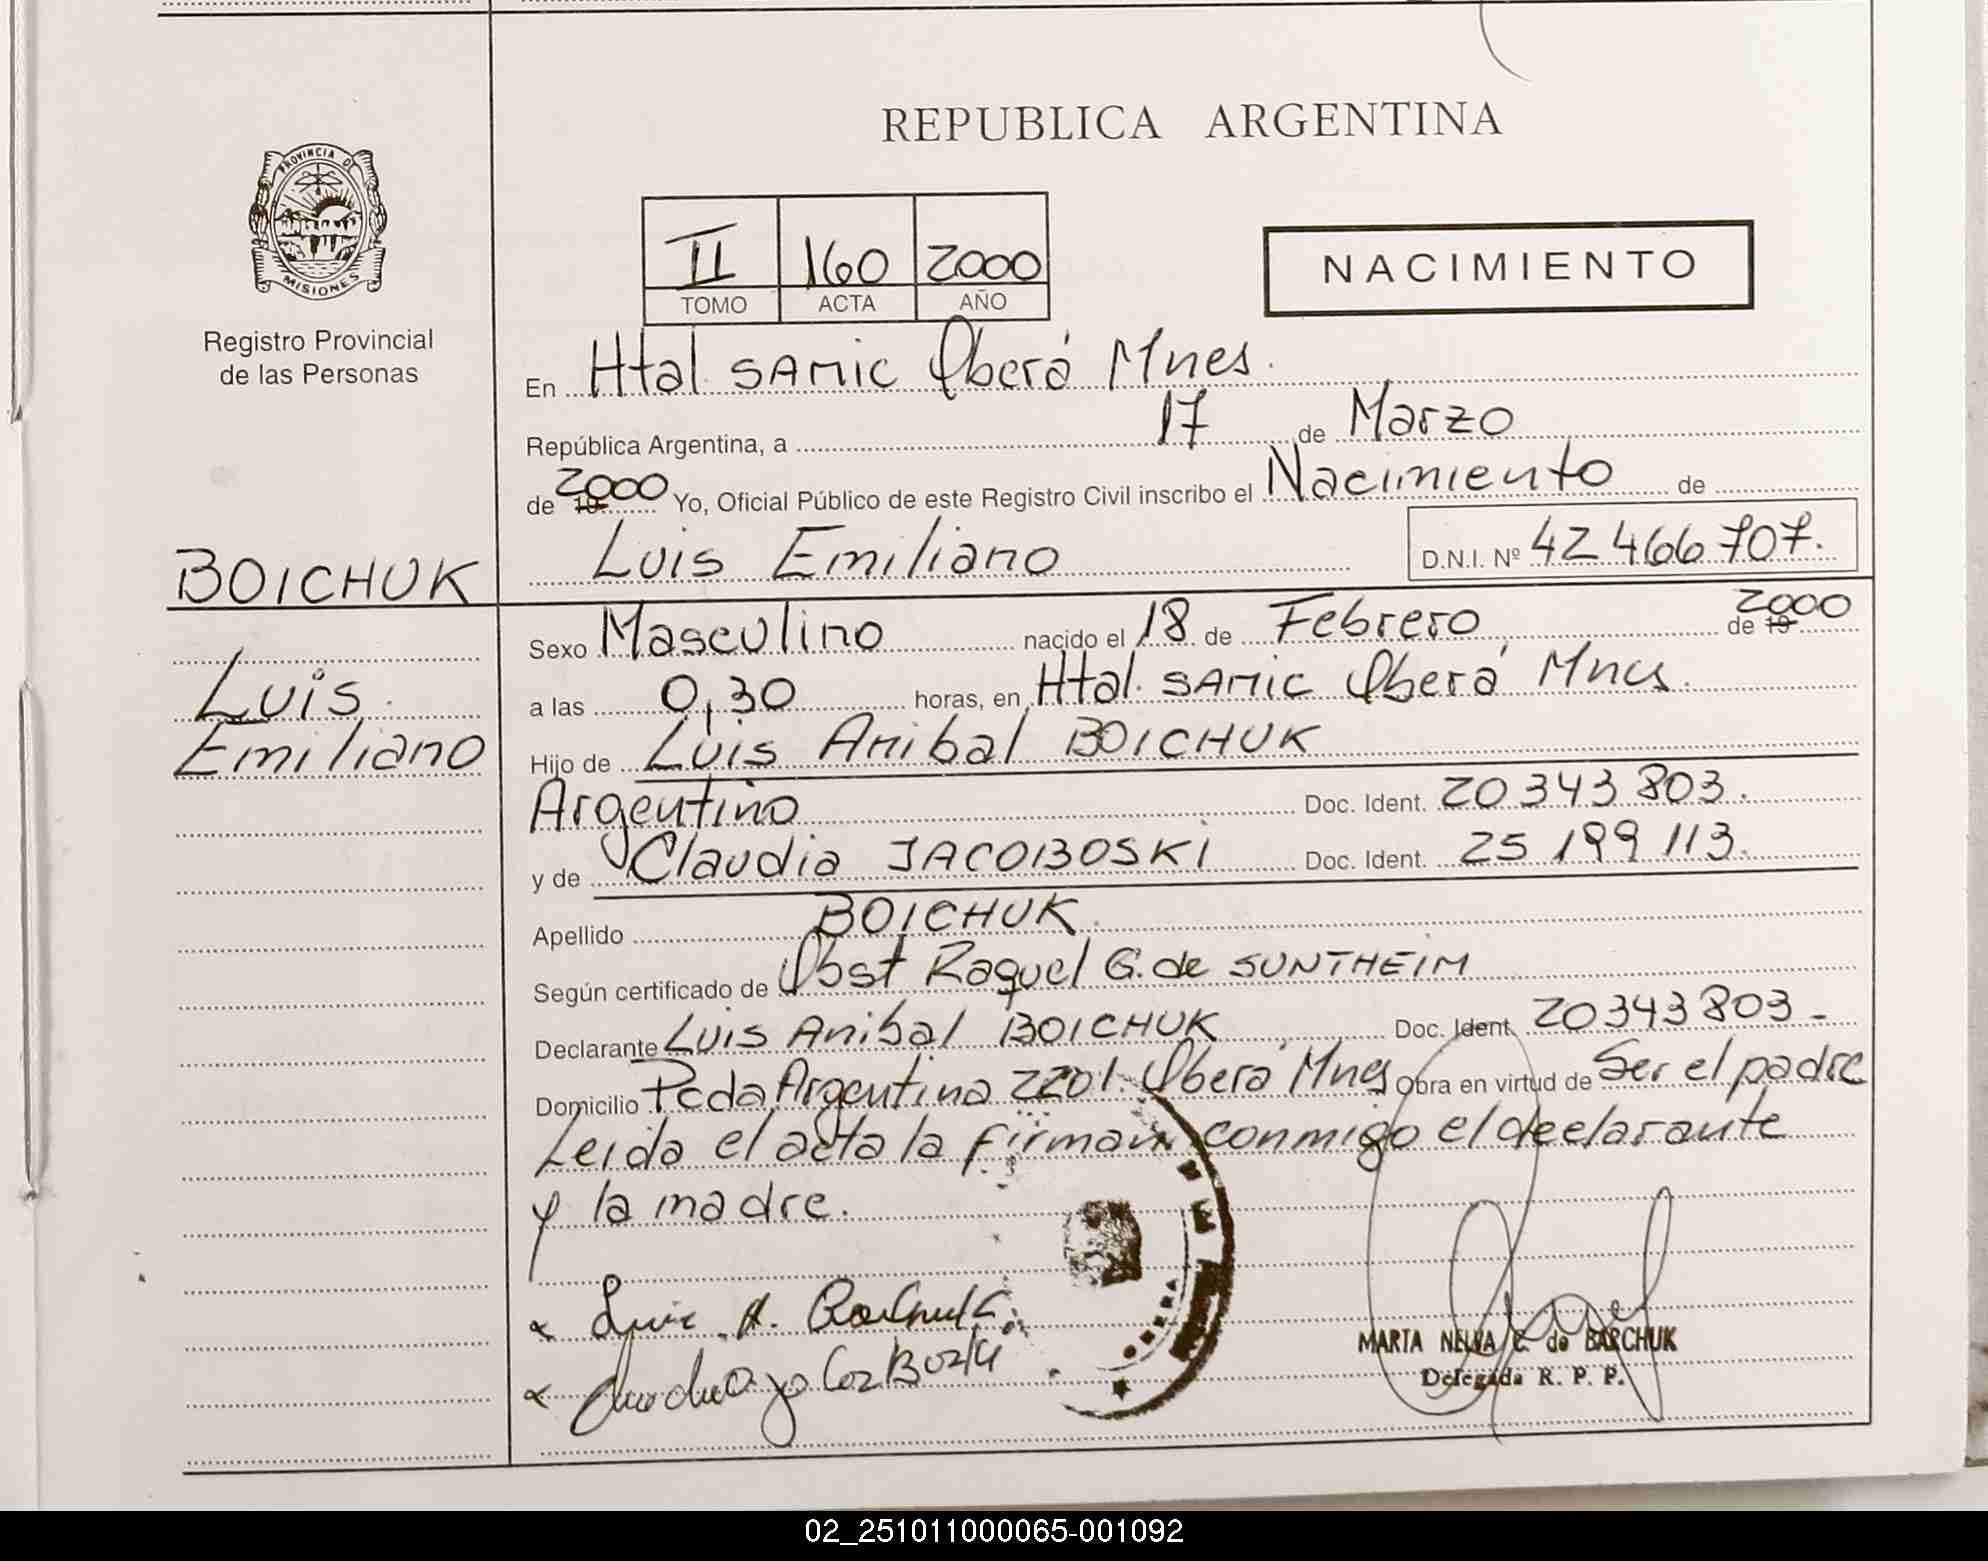 REPUBLICA ARGENTINA
PROVINCIA D
MISIONES
Registro Provincial
de las Personas
II 160 2000
TOMO ACTA AÑO
NACIMIENTO
En Htal SAMIC Oberá Mnes.
República Argentina, a 17 de Marzo
de 2000 19 Yo, Oficial Público de este Registro Civil inscribo el Nacimiento de
Luis Emiliano D.N.I. Nº 42 466 707.
BOICHUK
Luis
Emiliano
Sexo Masculino nacido el 18 de Febrero de 19 2000
a las 0,30 horas, en Htal. SAMIC Oberá Mnes.
Hijo de Luis Anibal BOICHUK
Argentino Doc. Ident. 20 343 803.
y de Claudia JACOBOSKI Doc. Ident. 25 199 113.
Apellido BOICHUK.
Según certificado de Obst Raquel G. de SUNTHEIM
Declarante Luis Anibal BOICHUK Doc. Ident. 20 343 803 -
Domicilio Pcda Argentina 2201 Oberá Mnes Obra en virtud de Ser el padre
Leida el acta la firman conmigo el declarante
y la madre.
Luis A. Boichuk
MARTA NELVA C. de BARCHUK
Delegada R. P. P.
OBERA
02_251011000065-001092